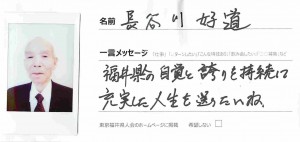 名前 長谷川好道
一言メッセージ
福井県の自覚と誇りを持続に
充実した人生を送りたいね
東京福井県人会のホームページに掲載 希望しない □